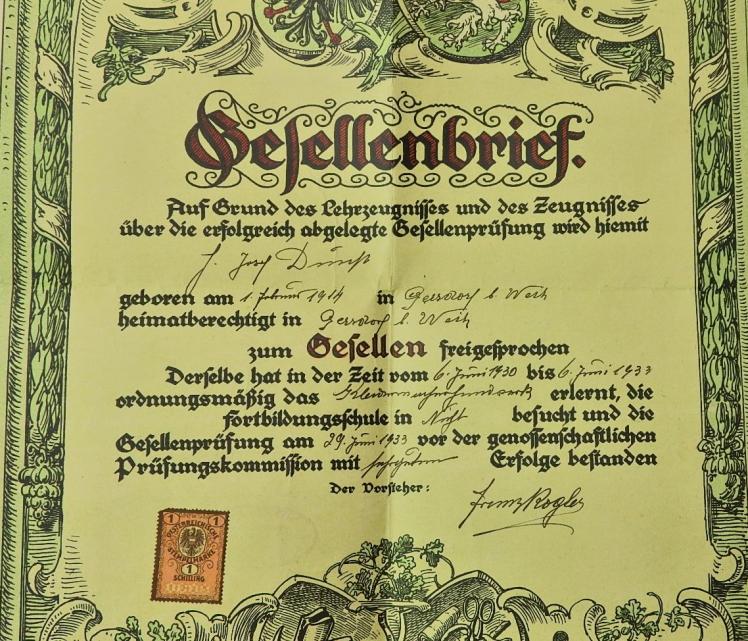 Gesellenbrief.
Auf Grund des Lehrzeugnisses und des Zeugnisses
über die erfolgreich abgelegte Gesellenprüfung wird hiemit
Josef
geboren am 1. Februar 1914 in Gersdorf b. Weitz
heimatberechtigt in Gersdorf b. Weitz
zum Gesellen freigesprochen
Derselbe hat in der Zeit vom 6. Juni 1930 bis 6. Juni 1933
ordnungsmäßig das erlernt, die
Fortbildungsschule in besucht und die
Gesellenprüfung am 29. Juni 1933 vor der genossenschaftlichen
Prüfungskommission mit sehr gutem Erfolge bestanden
Der Vorsteher:
Franz Kogler
1 1
OESTERREICHISCHE
STEMPELMARKE
1
SCHILLING